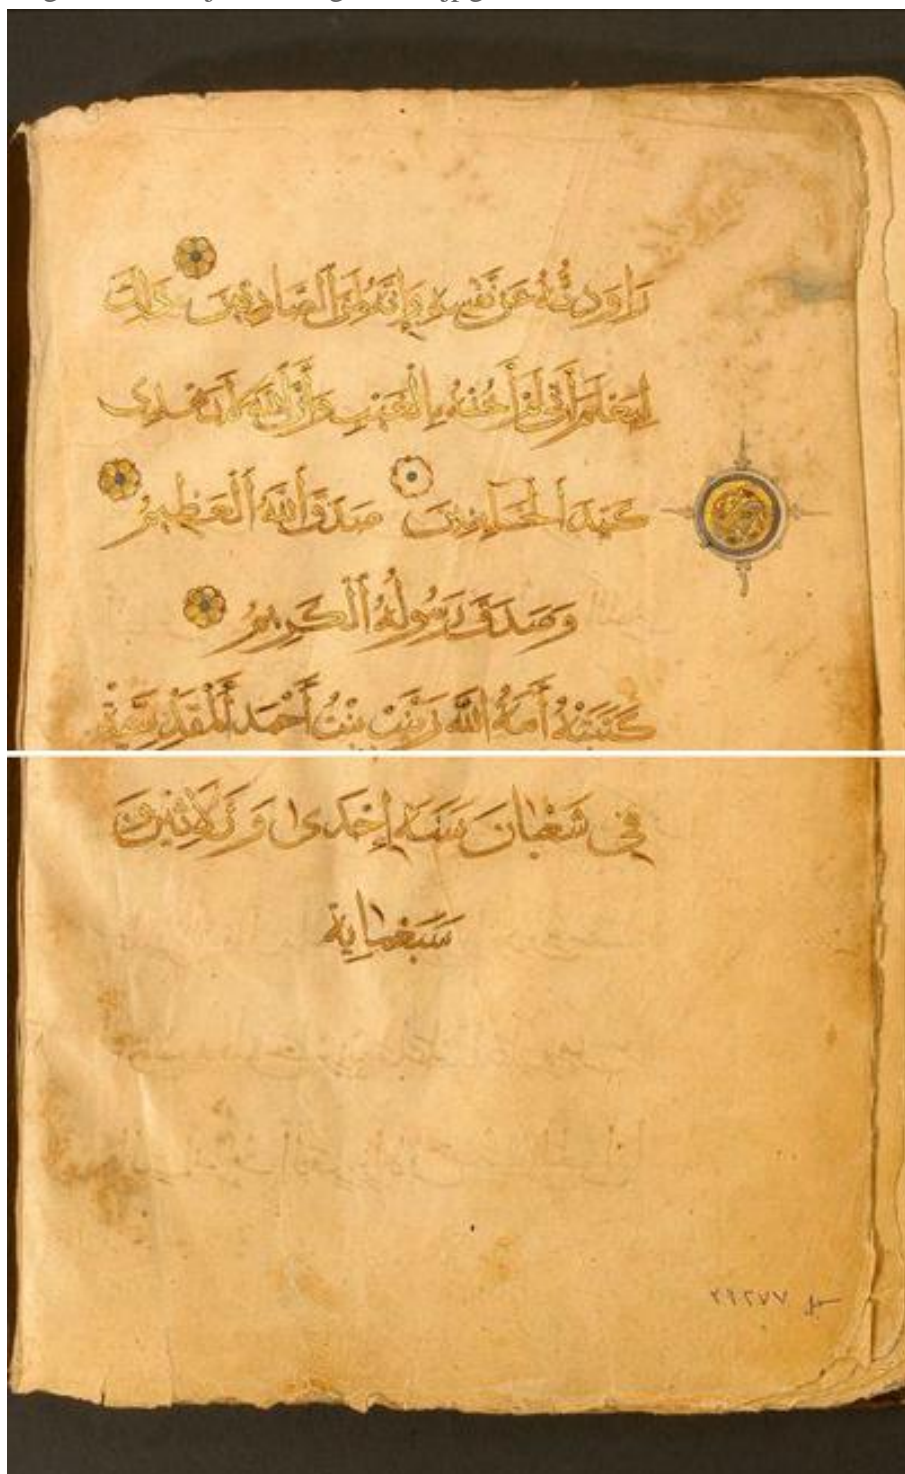 رَاوَدتُّهُ عَن نَّفْسِهِ وَإِنَّهُ لَمِنَ ٱلصَّادِقِينَ ذَلِكَ
لِيَعْلَمَ أَنِّي لَمْ أَخُنْهُ بِالْغَيْبِ وَأَنَّ ٱللَّهَ لَا يَهْدِى
كَيْدَ ٱلْخَائِنِينَ صَدَقَ ٱللَّهُ ٱلْعَظِيمُ
وَصَدَقَ رَسُولُهُ ٱلْكَرِيمُ
كَتَبَتْهُ أَمَةُ اللَّهِ زَيْنَبُ بِنْتُ أَحْمَدَ ٱلْمَقْدِسِيَّةُ
فِي شَعْبَانَ سَنَةَ إِحْدَى وَثَلَاثِينَ
سَبْعمِايَة